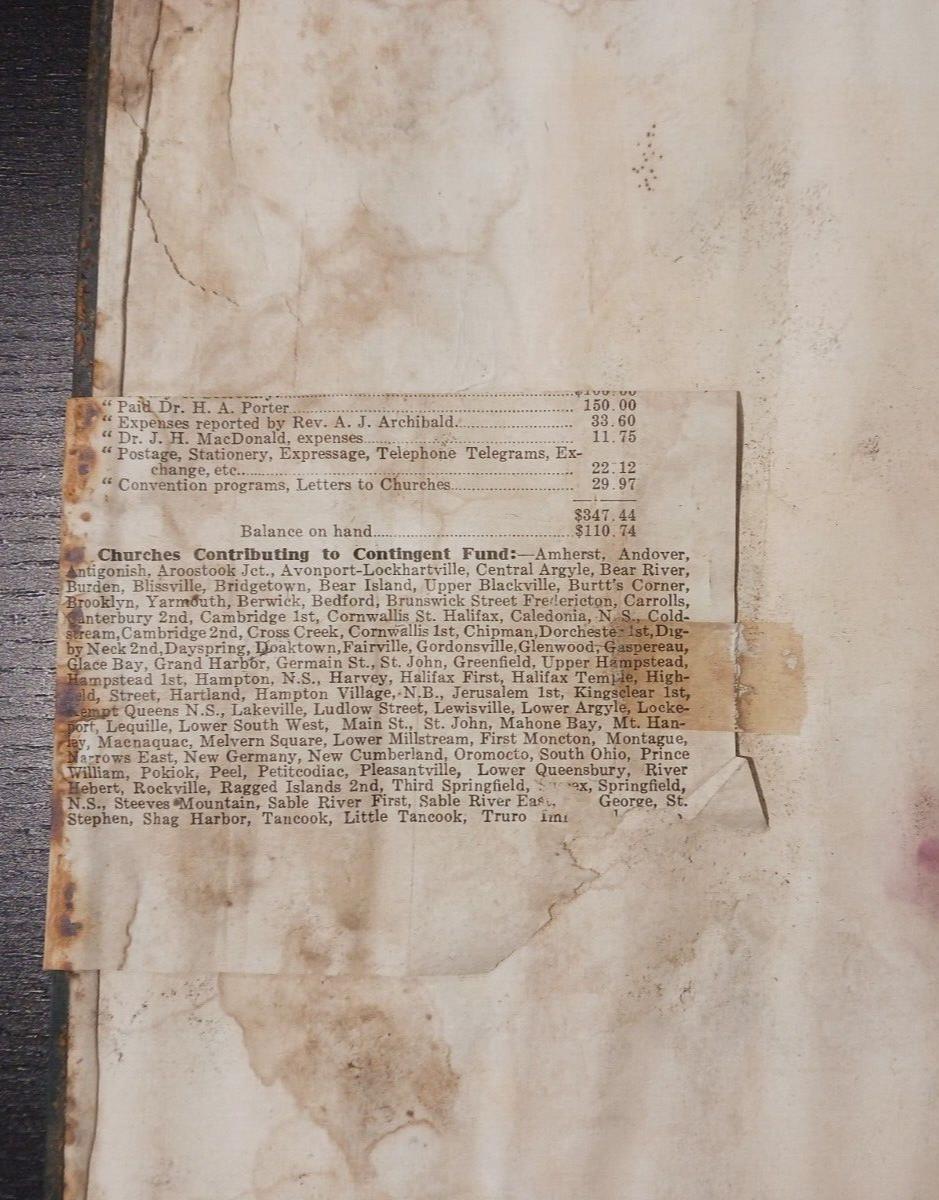 $100.00
“ Paid Dr. H. A. Porter 150.00
“ Expenses reported by Rev. A. J. Archibald. 33.60
“ Dr. J. H. MacDonald, expenses 11.75
“ Postage, Stationery, Expressage, Telephone Telegrams, Ex-
change, etc. 22.12
“ Convention programs, Letters to Churches 29.97
$347.44
Balance on hand $110.74
Churches Contributing to Contingent Fund:—Amherst, Andover,
Antigonish, Aroostook Jct., Avonport-Lockhartville, Central Argyle, Bear River,
Burden, Blissville, Bridgetown, Bear Island, Upper Blackville, Burtt's Corner,
Brooklyn, Yarmouth, Berwick, Bedford, Brunswick Street Fredericton, Carrolls,
Canterbury 2nd, Cambridge 1st, Cornwallis St. Halifax, Caledonia, N. S., Cold-
stream, Cambridge 2nd, Cross Creek, Cornwallis 1st, Chipman, Dorchester 1st, Dig-
by Neck 2nd, Dayspring, Doaktown, Fairville, Gordonsville, Glenwood, Gaspereau,
Glace Bay, Grand Harbor, Germain St., St. John, Greenfield, Upper Hampstead,
Hampstead 1st, Hampton, N.S., Harvey, Halifax First, Halifax Temple, High-
field, Street, Hartland, Hampton Village, N.B., Jerusalem 1st, Kingsclear 1st,
Kempt Queens N.S., Lakeville, Ludlow Street, Lewisville, Lower Argyle, Locke-
port, Lequille, Lower South West, Main St., St. John, Mahone Bay, Mt. Han-
ley, Macnaquac, Melvern Square, Lower Millstream, First Moncton, Montague,
Narrows East, New Germany, New Cumberland, Oromocto, South Ohio, Prince
William, Pokiok, Peel, Petitcodiac, Pleasantville, Lower Queensbury, River
Hebert, Rockville, Ragged Islands 2nd, Third Springfield, Springfield,
N.S., Steeves Mountain, Sable River First, Sable River East, George, St.
Stephen, Shag Harbor, Tancook, Little Tancook, Truro